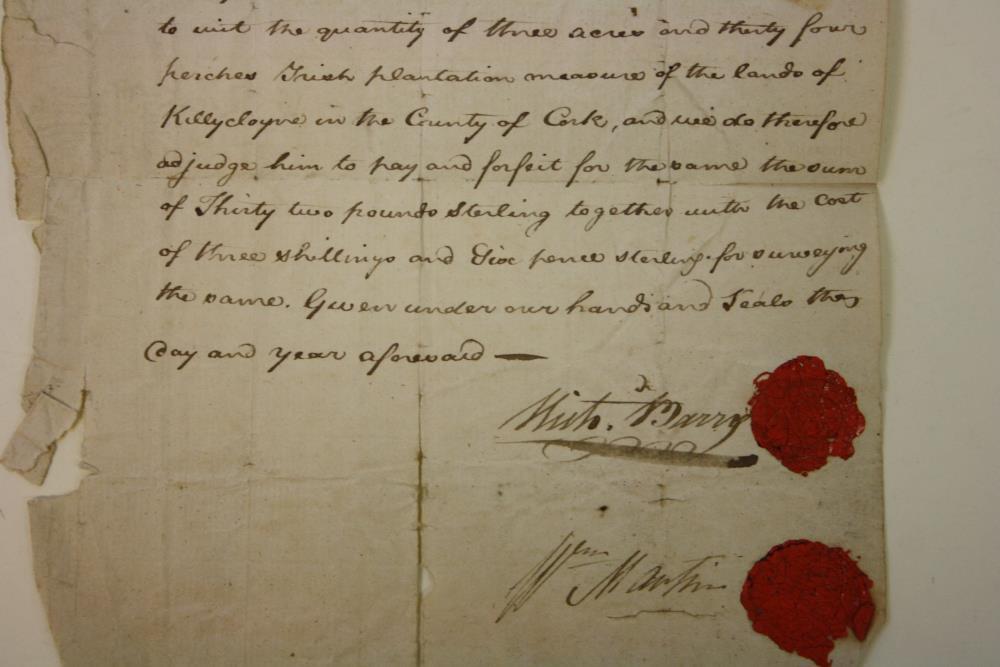 to wit the quantity of three acres and thirty four
perches Irish plantation measure of the lands of
Killycloyne in the County of Cork, and we do therefore
adjudge him to pay and forfeit for the same the sum
of Thirty two pounds Sterling together with the cost
of three shillings and Six pence sterling for surveying
the same. Given under our hands and Seals the
day and year aforesaid —
Barry
Wm Martin